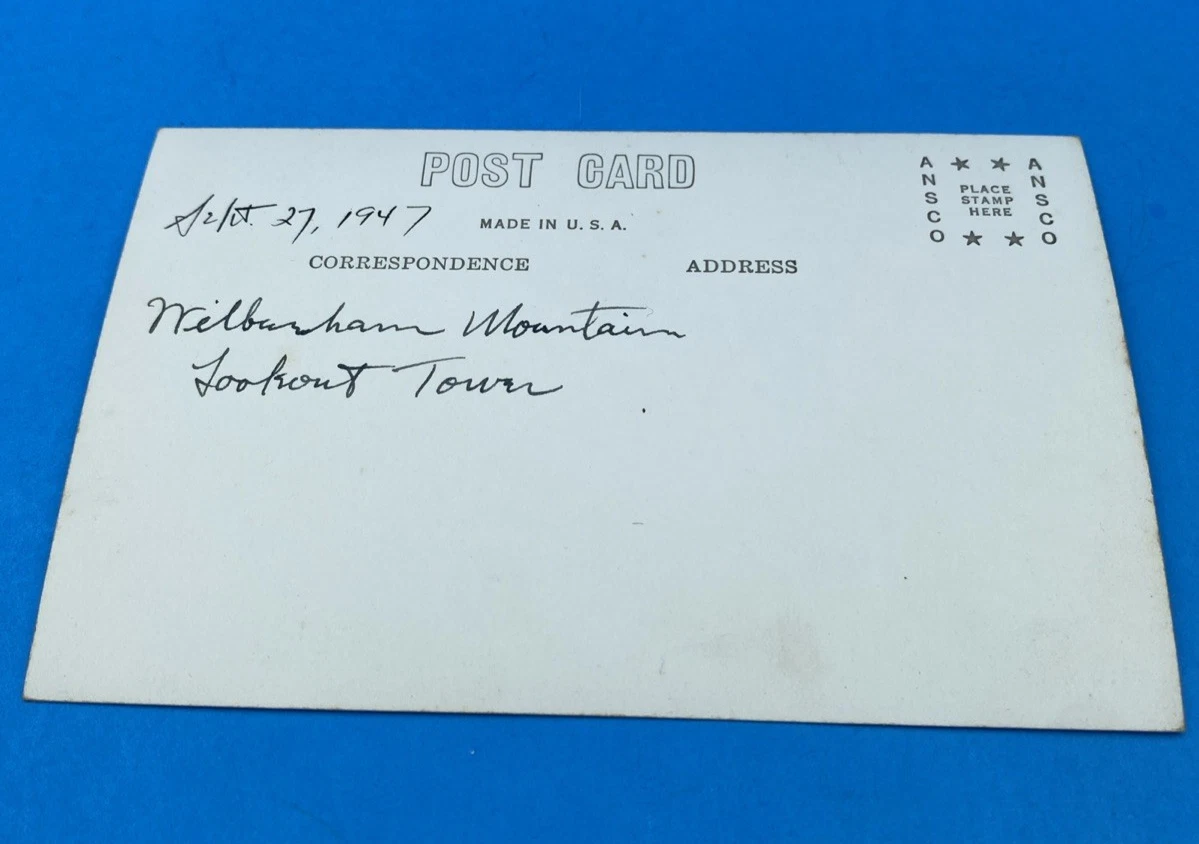 POST CARD
Sept. 27, 1947
MADE IN U. S. A.
CORRESPONDENCE
ADDRESS
Wilbraham Mountain
Lookout Tower
ANSCO
PLACE
STAMP
HERE
ANSCO